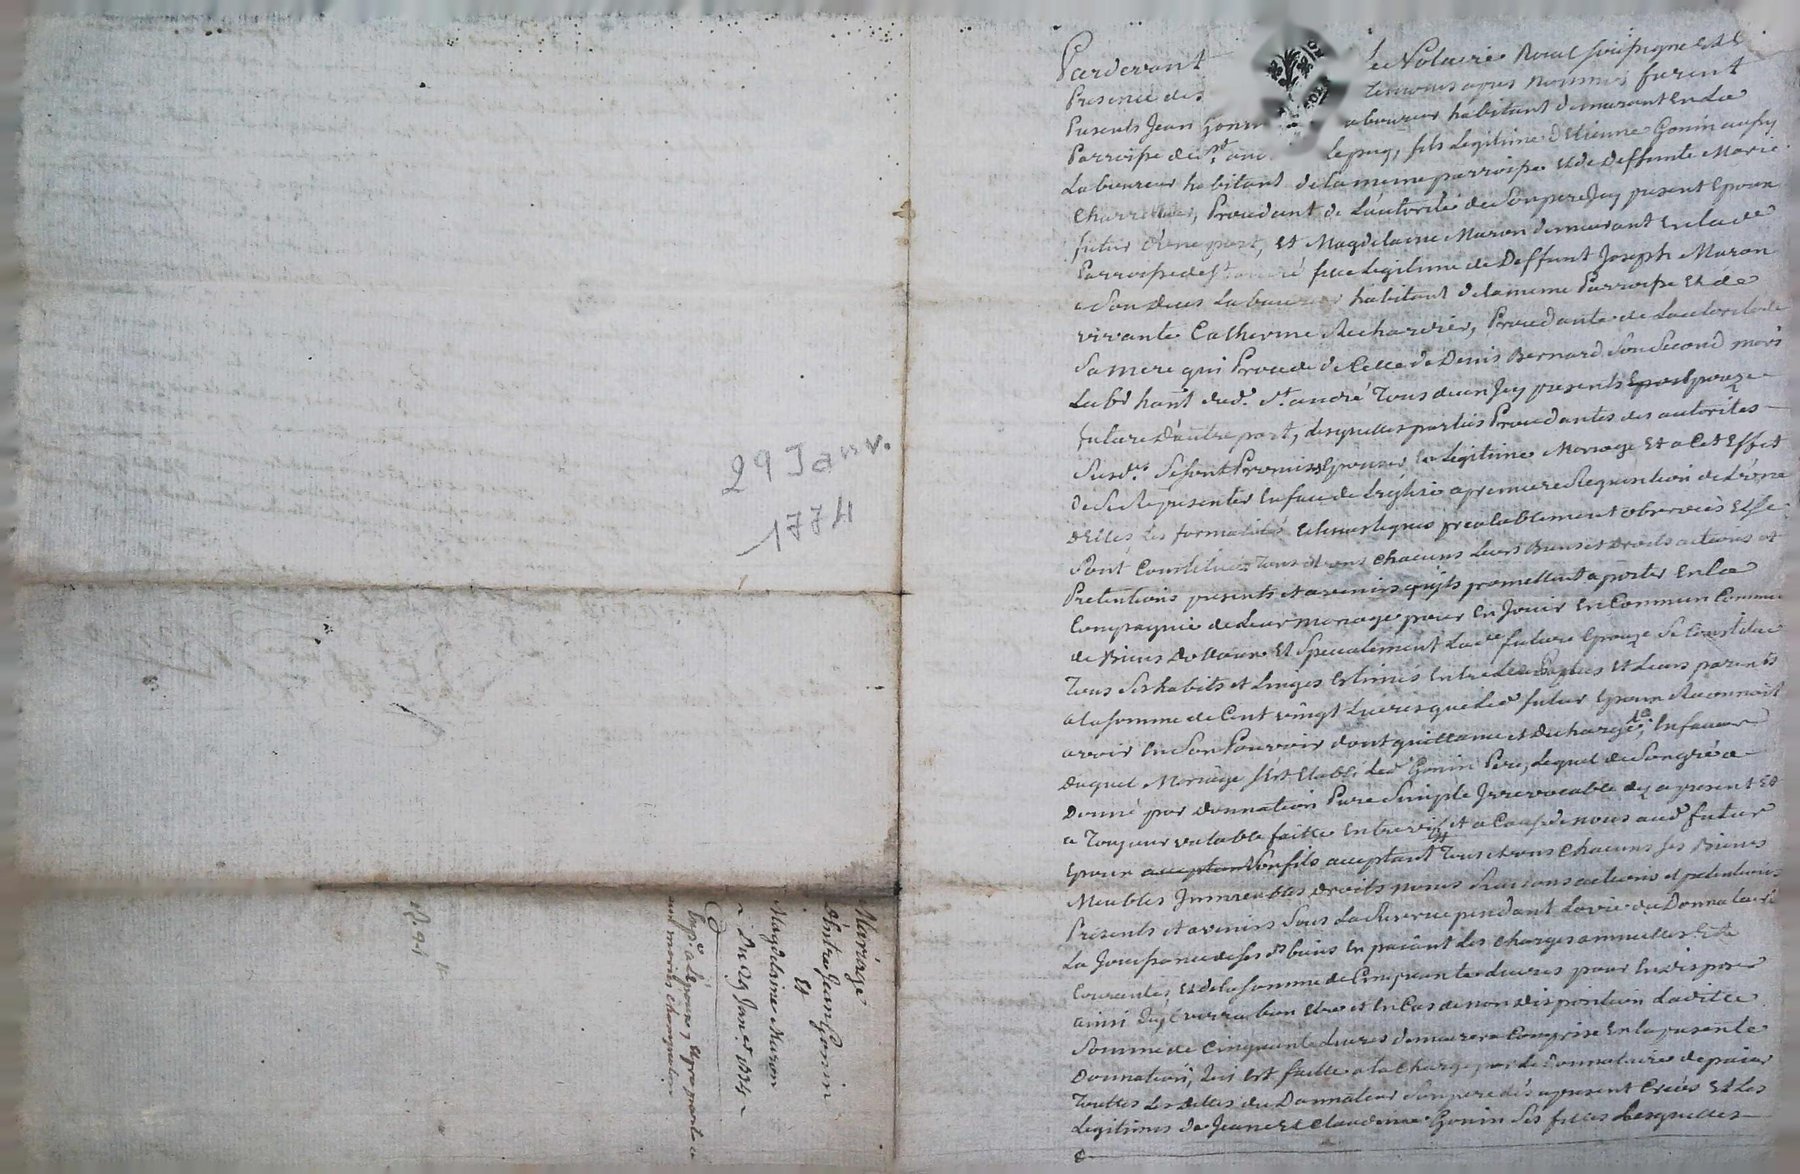 29 Janv.
1774
Mariage
D'Entre Jean Gonin
Et
Magdelaine Muron
Du 29 Janer 1774
Expe a L'époux
Pardevant Le Notaire Roial soussigné Et En
Presence des Temoins apres nommés furent
Presents Jean Gonin Laboureur habitant demeurant En La
Parroisse de St. andré Lepuy, fils Legitime D'Etienne Gonin aussy
Laboureur habitant de la meme parroisse Et de Deffunte Marie
Procedant de L'autorité de Son pere Icy present Epoux
futur d'une part, Et Magdelaine Muron demeurant En lad.
Parroisse de St andré fille Legitime de Deffunt Joseph Muron
a Son deces Laboureur habitant de la meme Parroisse Et de
vivante Catherine Procedante de L'autorité de
Sa mere qui Procede de Celle de Denis Bernard Son Second mary
Labr hant dud. St. andré Tous deux Icy presents Epouze
future D'autre part, Lesquelles parties Procedantes des autorites
Susd. Se sont Promis Epouser En Legitime Mariage Et a Cet Effet
de Se Representer En face de L'eglise a premiere Requisition de L'une
D'elles Les formalités prealablement observées Et Se
Sont Constitués Tous Et uns Chacuns Leurs Biens Et Droits actions et
Pretentions presents et avenirs qu'ils promettent aporter En La
Compagnie de Leur mariage pour En Jouir En Commun Comme
de Biens Dottaux Et Specialement Lade future Epouze Se Constitue
Tous Ses habits et Linges Estimés Entre Les Parties Et Leurs parents
a La Somme de Cent vingt Livres que Led. futur Epoux Reconnoit
avoir En Son Pouvoir dont quittance et Decharge, En faveur
duquel Mariage S'est Etabli Led. Gonin Pere, Lequel de Son gré a
Donné par donnation Pure Simple Irrevocable des a present Et
a Toujour valable faitte Entre vifs et a Cause de nous aud. futur
Epoux Son fils acceptant Tous et uns Chacuns Ses Biens
Meubles Immeubles Droits noms Raisons actions et pretentions
Presents et avenirs Sous La Reserve pendant La vie du Donnateur
La Jouissance de Sesd. biens En paiant Les Charges annuelles Et
Courantes Et de la Somme de Cinquante Livres pour En disposer
ainsi qu'il verra bon Etre et En Cas de non Disposition Laditte
Somme de Cinquante Livres demeurera Comprise En La presente
Donnation, qui Est faitte a la Charge par Le Donnataire de paier
Touttes Les Dettes du Donnateur Son pere dés a present Creées Et Les
Legitimes de Jeanne Et Claudine Gonin Ses filles Lesquelles